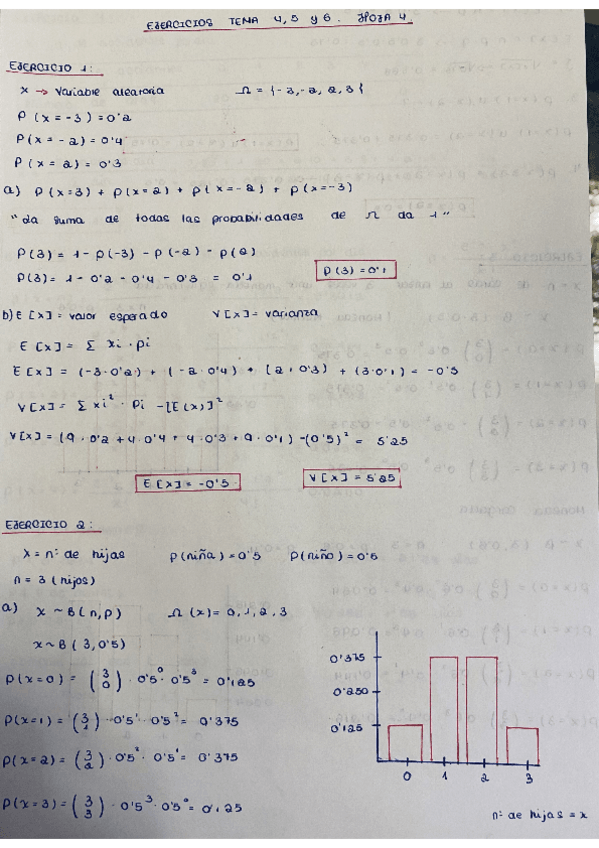 EJERCICIOS TEMA 4,5 y 6. HOJA 4
EJERCICIO 1:
x → variable aleatoria Ω = {-3,-2, 2, 3}
P(x=-3)=0'2
P(x=-2)=0'4
P(x=2)=0'3
a) P(x=3) + P(x=2) + P(x=-2) + P(x=-3)
"La suma de todas las probabilidades de Ω da 1"
P(3) = 1 - P(-3) - P(-2) - P(2)
P(3) = 1 - 0'2 - 0'4 - 0'3 = 0'1 P(3) = 0'1
b) E[x] = valor esperado V[x] = varianza
E[x] = Σ xi · pi
E[x] = (-3·0'2) + (-2·0'4) + (2·0'3) + (3·0'1) = -0'5
V[x] = Σ xi² · Pi - [E(x)]²
V[x] = (9·0'2 + 4·0'4 + 4·0'3 + 9·0'1) - (0'5)² = 5'25
E[x] = -0'5 V[x] = 5'25
EJERCICIO 2:
X = nº de hijas P(niña) = 0'5 P(niño) = 0'5
n = 3 (hijos)
a) X ~ B(n,p) Ω(x) = 0,1,2,3
X ~ B(3,0'5)
P(x=0) = (3 0) · 0'5⁰ · 0'5³ = 0'125
P(x=1) = (3 1) · 0'5¹ · 0'5² = 0'375
P(x=2) = (3 2) · 0'5² · 0'5¹ = 0'375
P(x=3) = (3 3) · 0'5³ · 0'5⁰ = 0'125
0'375
0'250
0'125
0 1 2 3
nº de hijas = x